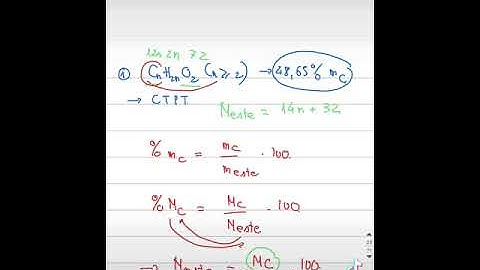 12n 2n 32
① CnH2nO2 (n ≥ 2) → 48,65% mC
→ CTPT
Meste = 14n + 32
% mC = mC / meste . 100
% MC = MC / Meste . 100
→ Meste = MC 100